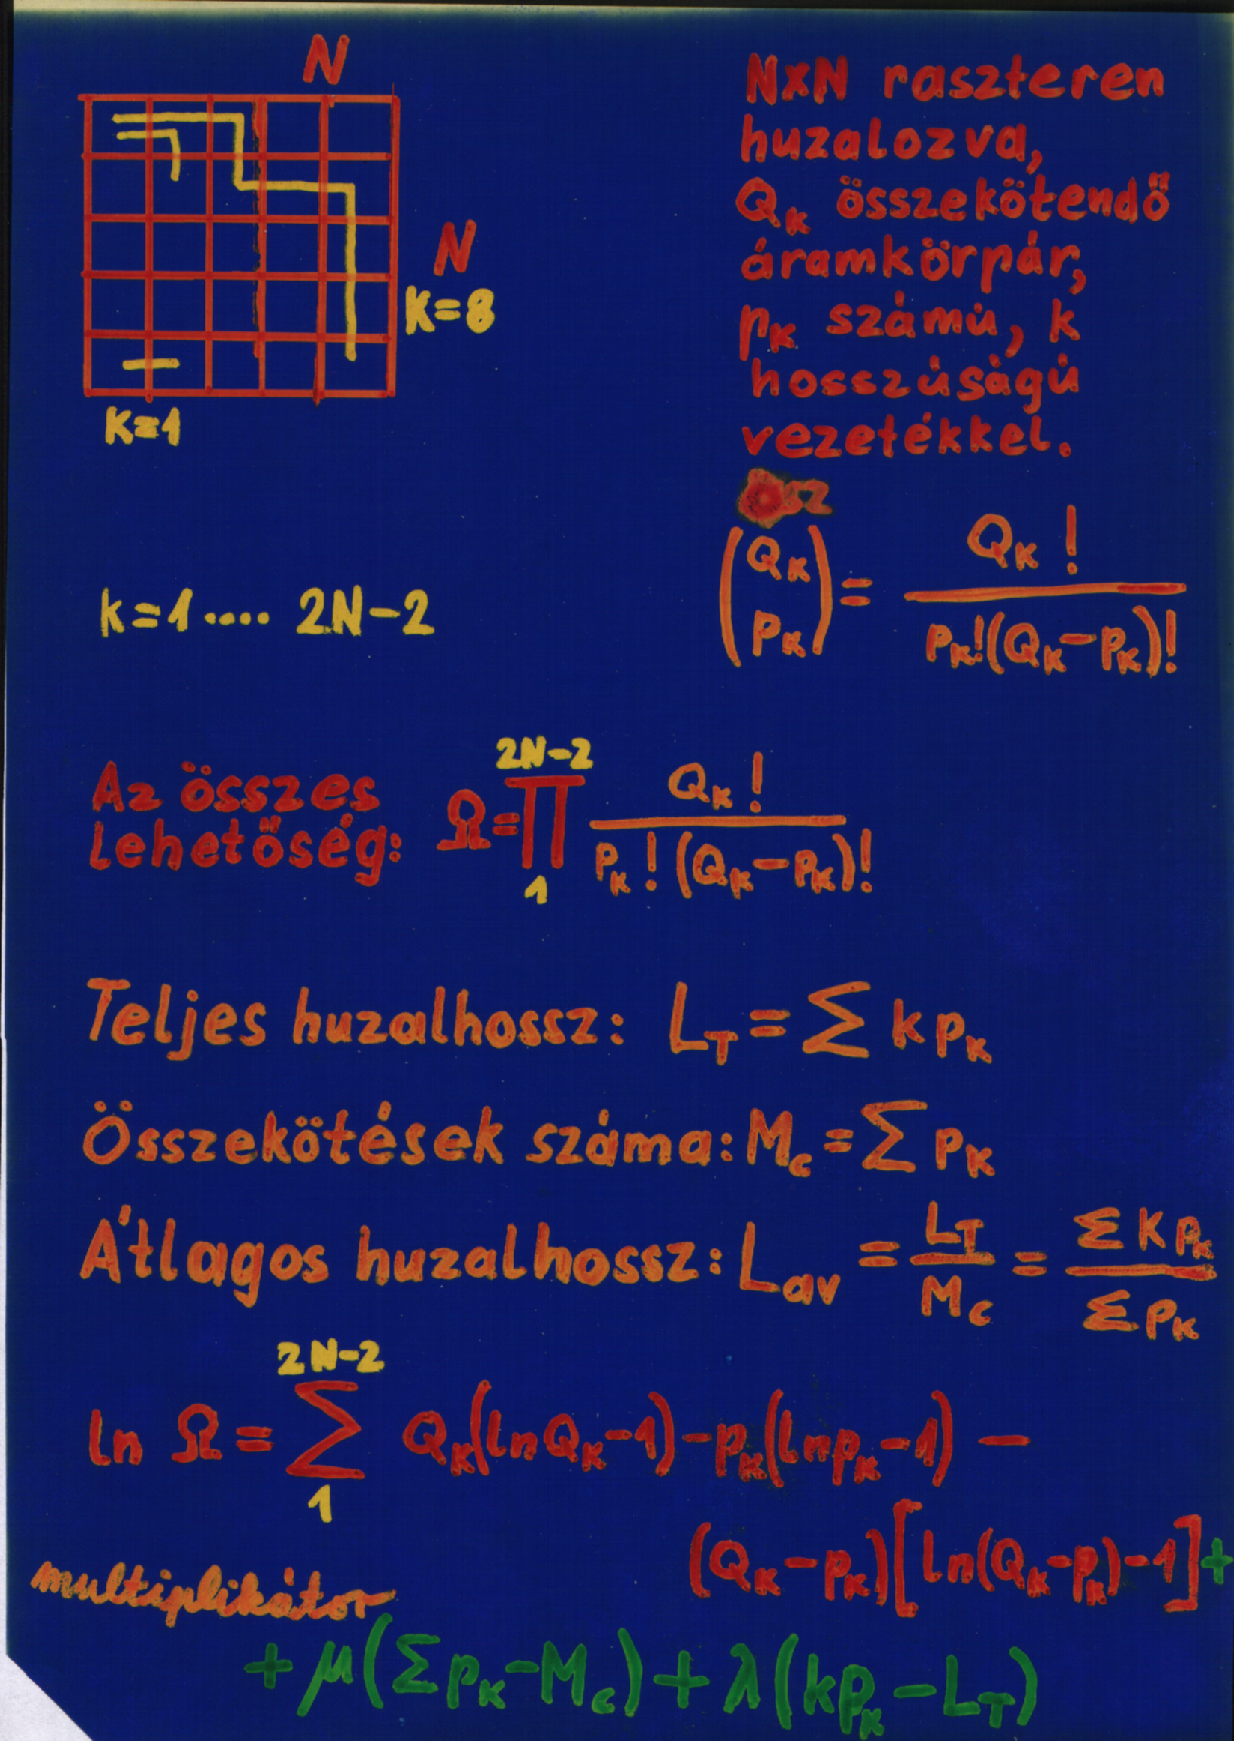 N
N
K=8
K=1
NxN raszteren
huzalozva,
Qₖ összekötendő
áramkörpár,
pₖ számú, k
hosszúságú
vezetékkel.
(Qₖ pₖ) = Qₖ! / pₖ!(Qₖ-pₖ)!
k=1.... 2N-2
Az összes
lehetőség: Ω = ∏ 1 2N-2 Qₖ! / pₖ!(Qₖ-pₖ)!
Teljes huzalhossz: L_T = Σ k pₖ
Összekötések száma: M_c = Σ pₖ
Átlagos huzalhossz: L_av = L_T / M_c = Σ k pₖ / Σ pₖ
2N-2
ln Ω = Σ Qₖ(ln Qₖ-1) - pₖ(ln pₖ-1) -
1
(Qₖ-pₖ)[ln(Qₖ-pₖ)-1] +
multiplikátor
+ μ(Σ pₖ-M_c) + λ(kpₖ-L_T)